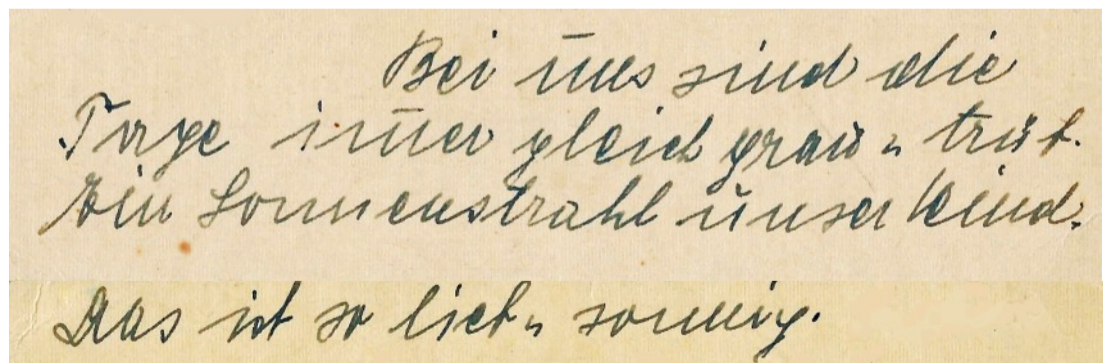 Bei uns sind die
Tage im̅er gleich grau u trüb.
Ein Sonnenstrahl unser Kind.
Das ist so lieb u sonnig.